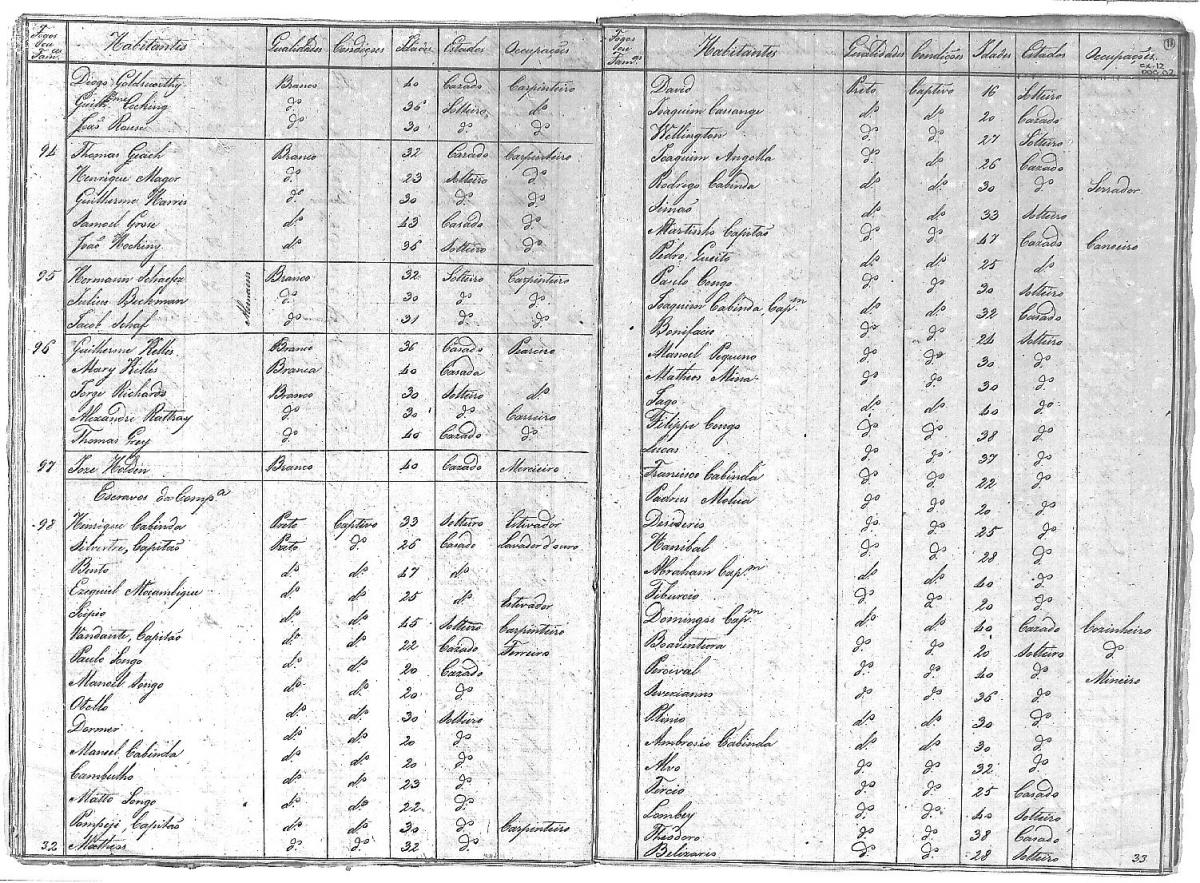 Fogos ou Fam.as Habitantes Qualidades Condições Idades Estados Occupação
Diogo Goldsworthy Branco 40 Cazado Carpinteiro
Guilh.me Cocking d.o 35 Solteiro d.o
João Rouse d.o 30 d.o d.o
94 Thomas Geach Branco 32 Casado Carpinteiro
Henrique Mager d.o 23 Solteiro d.o
Guilherme Harris d.o 30 d.o d.o
Samoel Grose d.o 43 Casado d.o
João Hocking d.o 36 Solteiro d.o
95 Hermann Branco 32 Solteiro Carpinteiro
Julius Beckman d.o 30 d.o d.o
Jacob Schaf d.o 31 d.o d.o
96 Guilherme Kelles Branco 36 Casado
Mary Kelles Branca 40 Casada
Jorge Richards Branco 30 Solteiro d.o
Alexandre Rattray d.o 30 d.o Carreiro
Thomas Grey d.o 40 Cazado d.o
97 Joze Holden Branco 40 Cazado Mercieiro
Escravos da Comp.a
98 Henrique Cabinda Preto Captivo 33 Solteiro Estivador
Silvestre, Capitão Preto d.o 26 Casado Lavador d'ouro
Bento d.o d.o 47 d.o
Ezequiel Moçambique d.o d.o 25 d.o Estivador
Scipio d.o d.o 45 Solteiro Carpinteiro
Vandante, Capitão d.o d.o 22 Cazado Ferreiro
Paulo Songo d.o d.o 20 Cazado
Manoel Songo d.o d.o 20 d.o
Otello d.o d.o 30 Solteiro
Dermer d.o d.o 20 d.o
Manoel Cabinda d.o d.o 20 d.o
Cambutho d.o d.o 23 d.o
Matto Songo d.o d.o 22 d.o
Pompeji, Capitão d.o d.o 30 d.o Carpinteiro
32 Matheos d.o d.o 32 d.o
Fogos ou Fam.as Habitantes Qualidades Condições Idades Estados Occupações
David Preto Captivo 16 Solteiro
Joaquim Cassange d.o d.o 20 Cazado
Wellington d.o d.o 27 Solteiro
Joaquim Angolla d.o d.o 26 Cazado
Rodrigo Cabinda d.o d.o 30 d.o Serrador
Simão d.o d.o 33 Solteiro
Martinho Capitão d.o d.o 47 Cazado
Pedro d.o d.o 25 d.o
Paulo Congo d.o d.o 30 Solteiro
Joaquim Cabinda, Cap.m d.o d.o 32 Casado
Bonifacio d.o d.o 24 Solteiro
Manoel Pequeno d.o d.o 30 d.o
Matheos Mina d.o d.o 30 d.o
Jago d.o d.o 40 d.o
Filippe Congo d.o d.o 38 d.o
Lucas d.o d.o 37 d.o
Francisco Cabinda d.o d.o 22 d.o
d.o d.o 20 d.o
Desiderio d.o d.o 25 d.o
Hanibal d.o d.o 28 d.o
Abraham Cap.m d.o d.o 40 d.o
Tiburcio d.o d.o 20 d.o
Domingos Cap.m d.o d.o 40 Cazado Cozinheiro
Boaventura d.o d.o 20 Solteiro d.o
Percival d.o d.o 40 d.o Mineiro
Severianno d.o d.o 36 d.o
Plinio d.o d.o 30 d.o
Ambrosio Cabinda d.o d.o 30 d.o
Alvo d.o d.o 32 d.o
Tercio d.o d.o 25 Casado
Lambey d.o d.o 40 Solteiro
Theodoro d.o d.o 38 Casado
Belizario d.o d.o 28 Solteiro 33